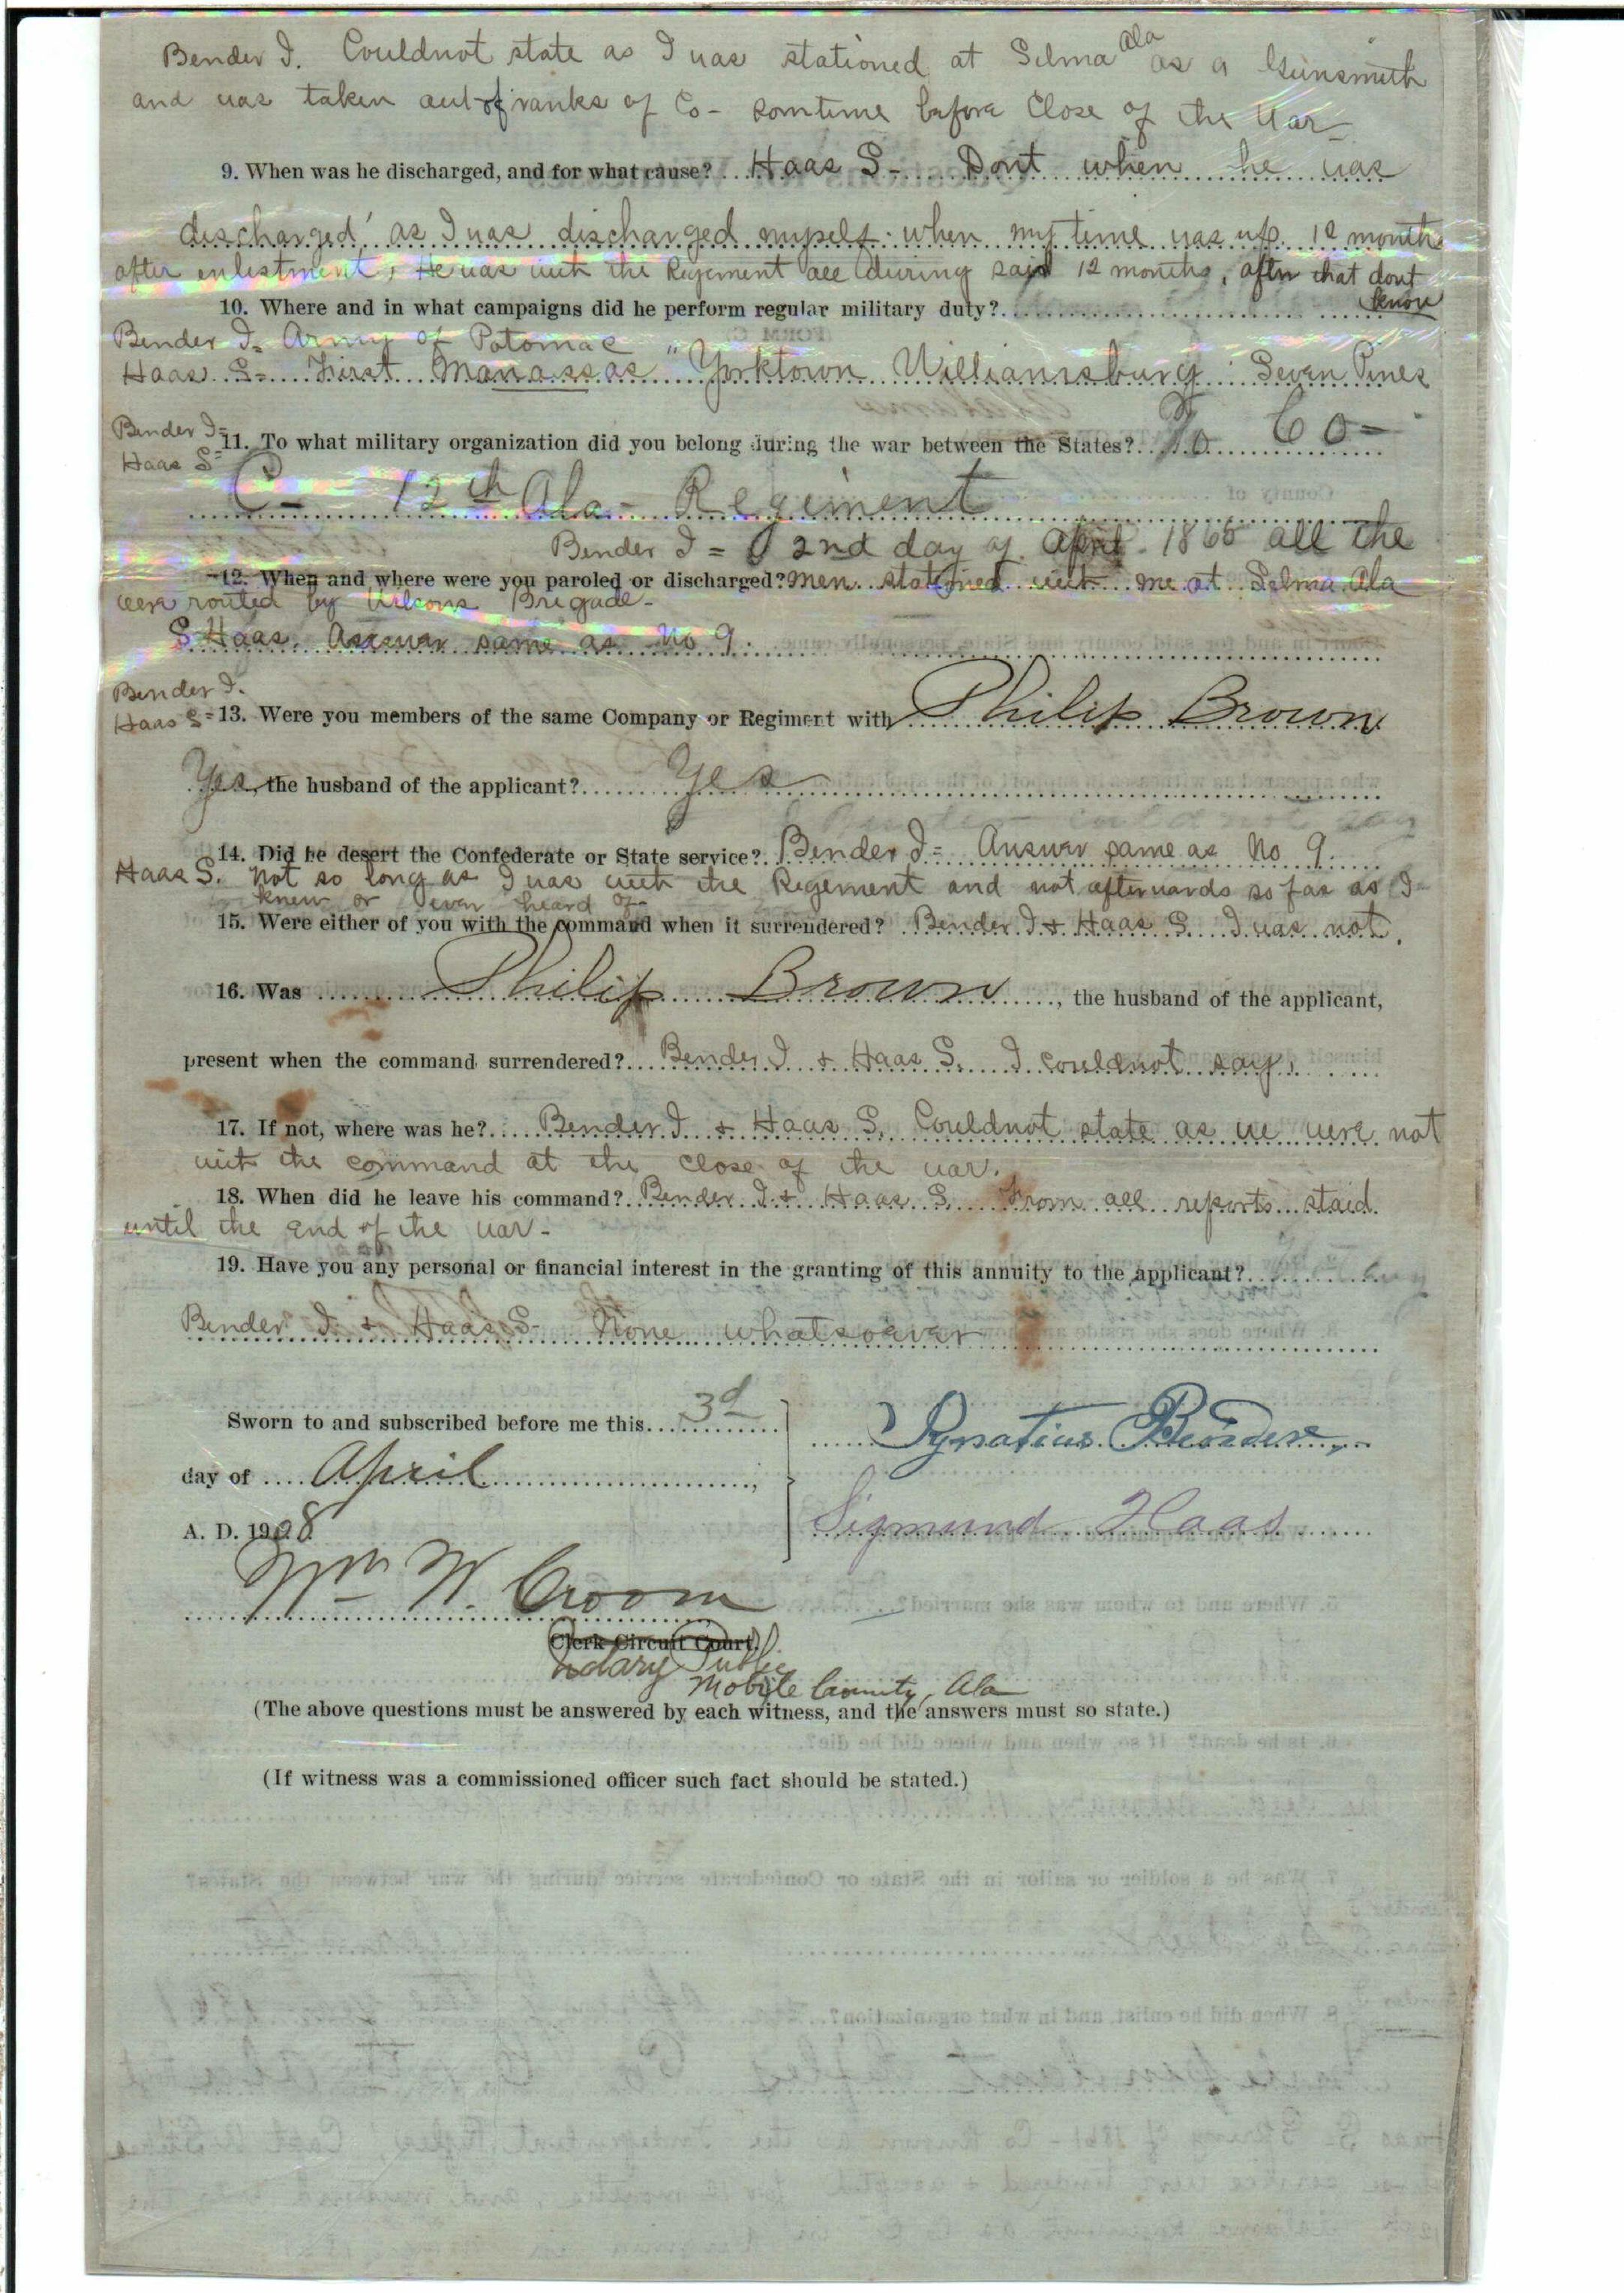 Bender I. Couldnot state as I was stationed at Selma Ala as a Gunsmith
and was taken out of ranks of Co - somtime before Close of the War -
9. When was he discharged, and for what cause? Haas S - Dont when he was
discharged as I was discharged myself when my time was up. 12 months
after enlistment, He was with the Regement all during said 12 months, after that dont
know
10. Where and in what campaigns did he perform regular military duty?
Bender I = Army of Potomac
Haas S = First Manassas " Yorktown Williamsburg Seven Pines
Bender I =
Haas S =
11. To what military organization did you belong during the war between the States? To Co =
C - 12th Ala - Regiment
Bender I = 2nd day of April 1865 all the
12. When and where were you paroled or discharged? men stationed with me at Selma Ala
were routed by Wilsons Brigade -
S Haas. Answer same as No 9.
Bender I.
Haas S =
13. Were you members of the same Company or Regiment with Philip Brown
Yes, the husband of the applicant? Yes
14. Did he desert the Confederate or State service? Bender I = Answer same as No 9.
Haas S. Not so long as I was with the Regement and not afterwards so far as I
knew or ever heard of -
15. Were either of you with the command when it surrendered? Bender I & Haas S. I was not.
16. Was Philip Brown, the husband of the applicant,
present when the command surrendered? Bender I & Haas S. I couldnot say.
17. If not, where was he? Bender I & Haas S. Couldnot state as we were not
with the command at the close of the war.
18. When did he leave his command? Bender I & Haas S. From all reports staid
until the end of the war -
19. Have you any personal or financial interest in the granting of this annuity to the applicant?
Bender I & Haas S - None whatsoever
Sworn to and subscribed before me this 3d
day of April,
A. D. 1908
Ignatius Bender,
Sigmund Haas
Wm W. Croom
Clerk Circuit Court.
Notary Public
Mobile County, Ala
(The above questions must be answered by each witness, and the answers must so state.)
(If witness was a commissioned officer such fact should be stated.)